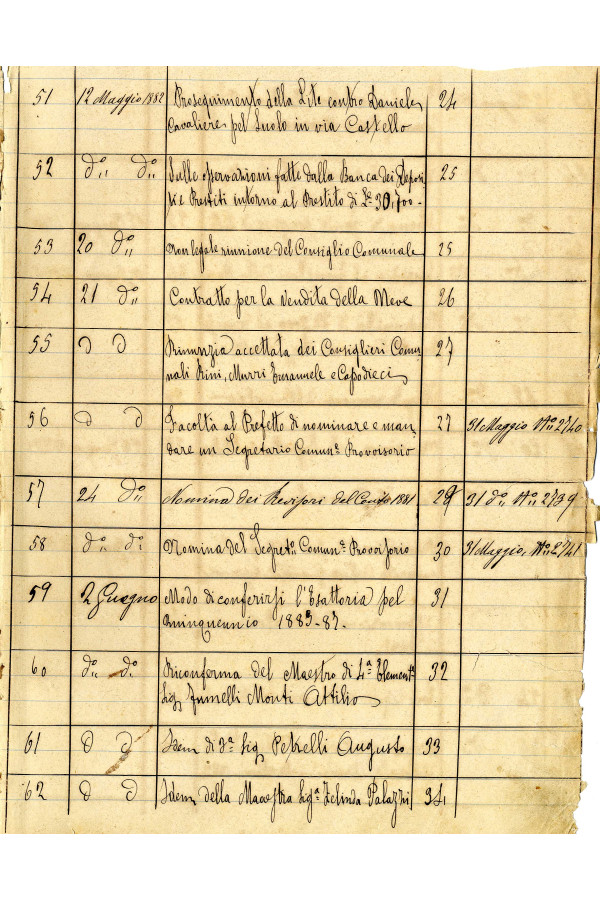 51 12 Maggio 1882 Proseguimento della Lite contro Daniele 24
Cavaliere pel Suolo in via Castello
52 do do Sulle osservazioni fatte dalla Banca dei Deposi 25
ti e Prestiti intorno al Prestito di L. 30,700-
53 20 do Non legale riunione del Consiglio Comunale 25
54 21 do Contratto per la vendita della Neve 26
55 d d Rinunzia accettata dei Consiglieri Comu 27
nali Rini, Murri Emanuele e Capodieci
56 d d Facoltà al Prefetto di nominare e man 27 31 Maggio No 2740
dare un Segretario Comune Provvisorio
57 24 do Nomina dei Revisori del Conto 1881 29 31 do No 2739
58 do do Nomina del Segreto Comune Provvisorio 30 31 Maggio, No 2741
59 2 Giugno Modo di conferirsi l'Esattoria pel 31
Quinquennio 1883-87.
60 do do Riconferma del Maestro di 4a Elemente 32
Sig Monti Attilio
61 d d Idem di 3a Sig Petrelli Augusto 33
62 d d Idem della Maestra Siga Zelinda Palazzi 34